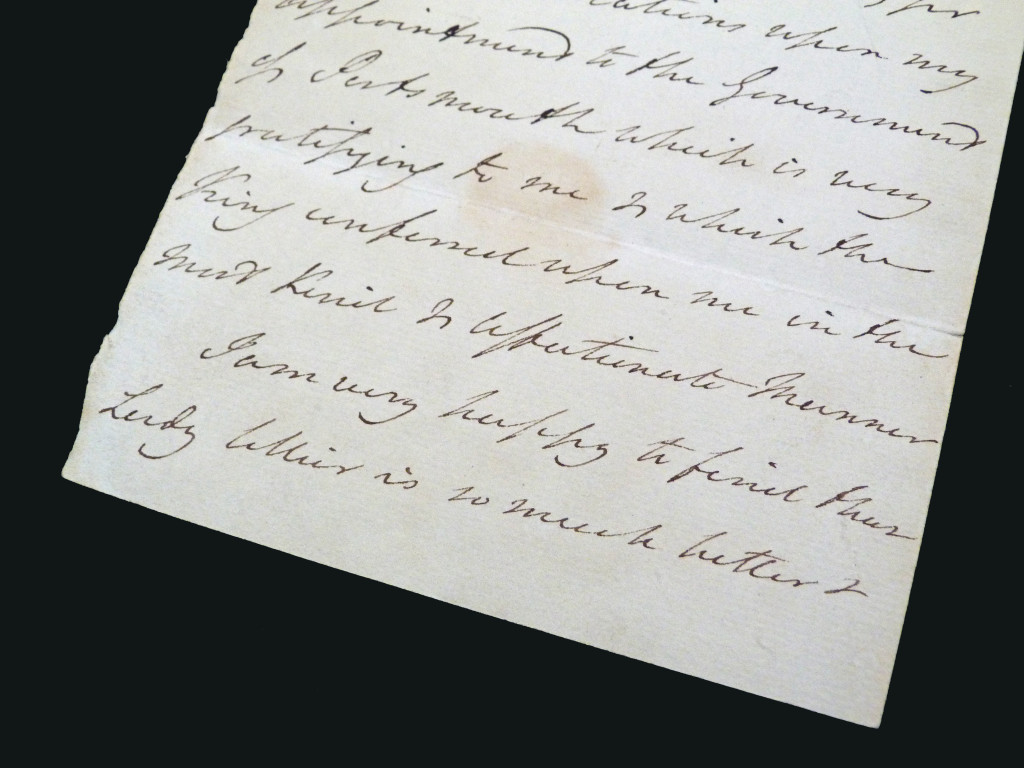 upon my
appointment to the Government
of Portsmouth which is very
gratifying to me & which the
King conferred upon me in the
most kind & affectionate Manner
I am very happy to find that
Lady is so much better &